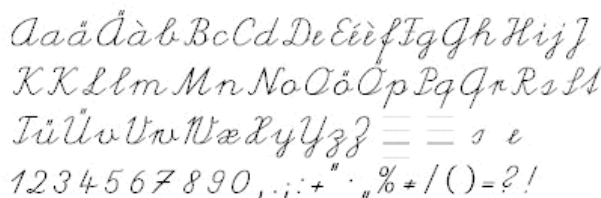 aaäÄàbBcCdDeEéèfFgGhHijJ
KKLlmMnNoOöÖpPqQrRsSt
TüÜvVwWxXyYzZ s e
1234567890,.;:+"·„%≠/()=?!